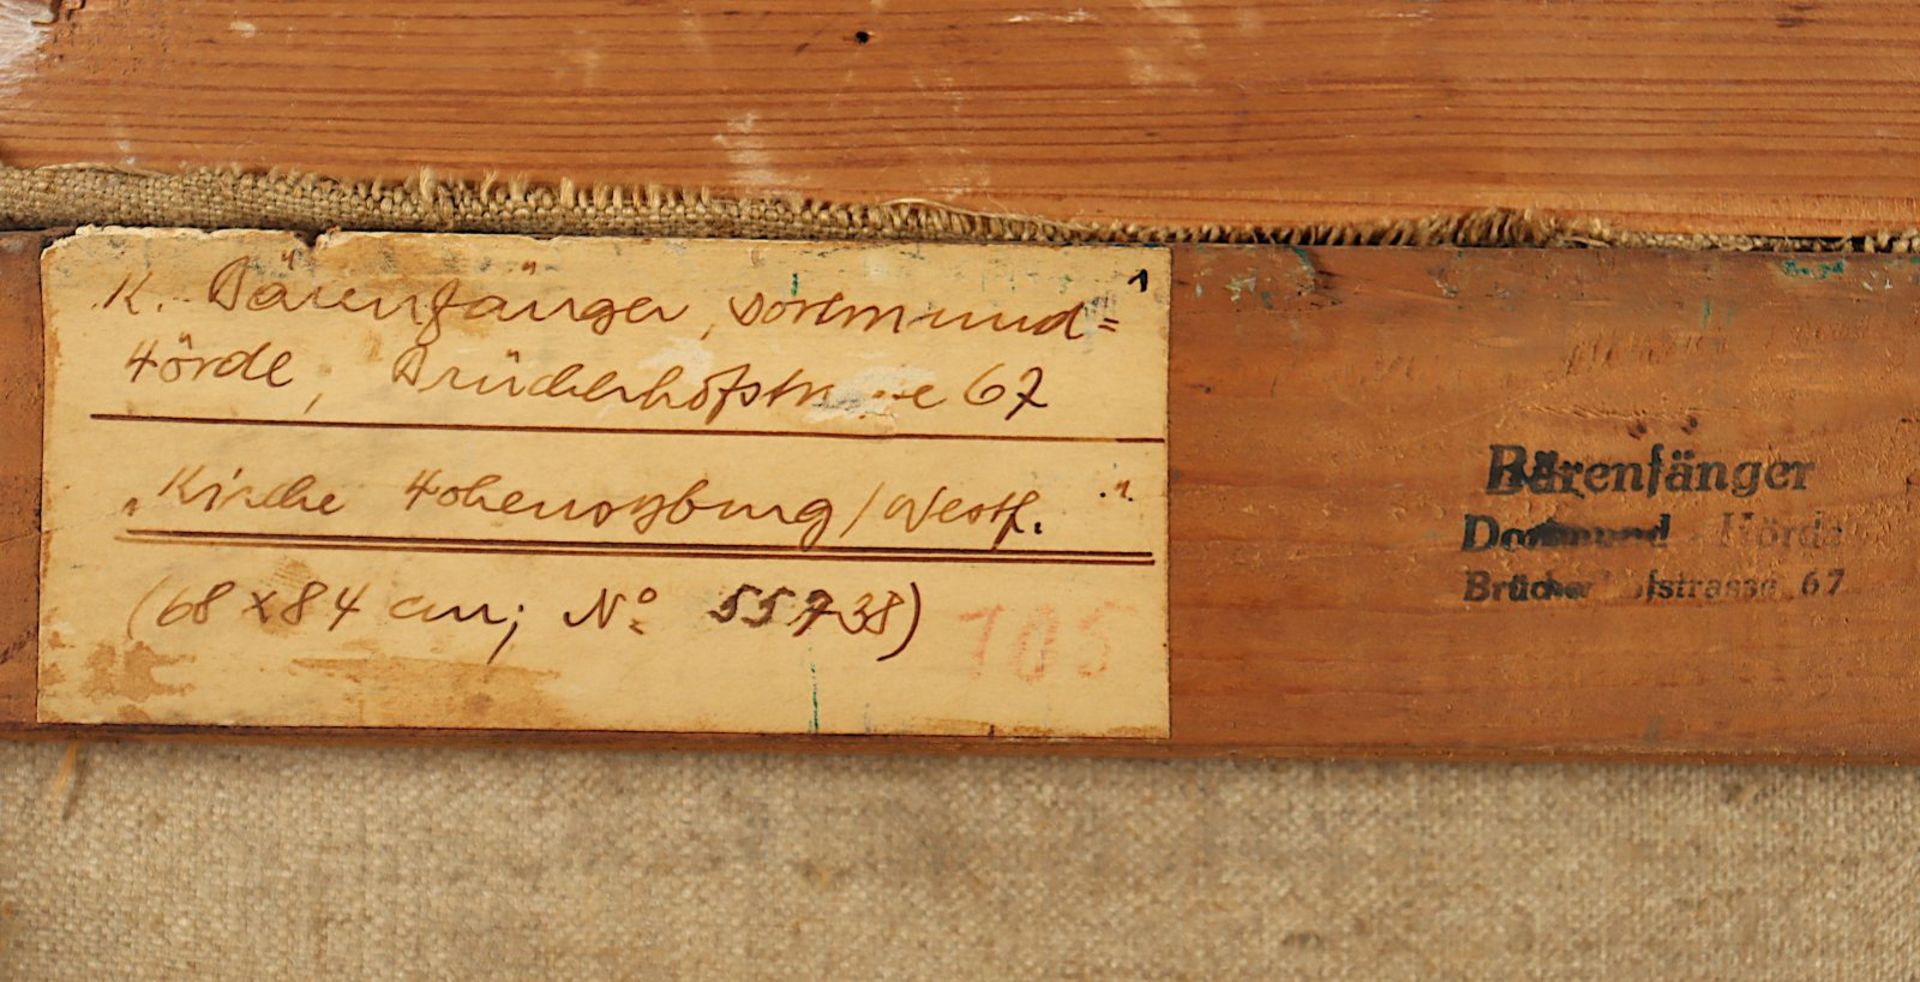 1
K. Bärenfänger, Dortmund=
Hörde, Brücherhofstrasse 67
"Kirche Hohensyburg/Westf."
(68 x 84 cm; No 55738)
Bärenfänger
Dortmund - Hörde
Brücherhofstrasse 67